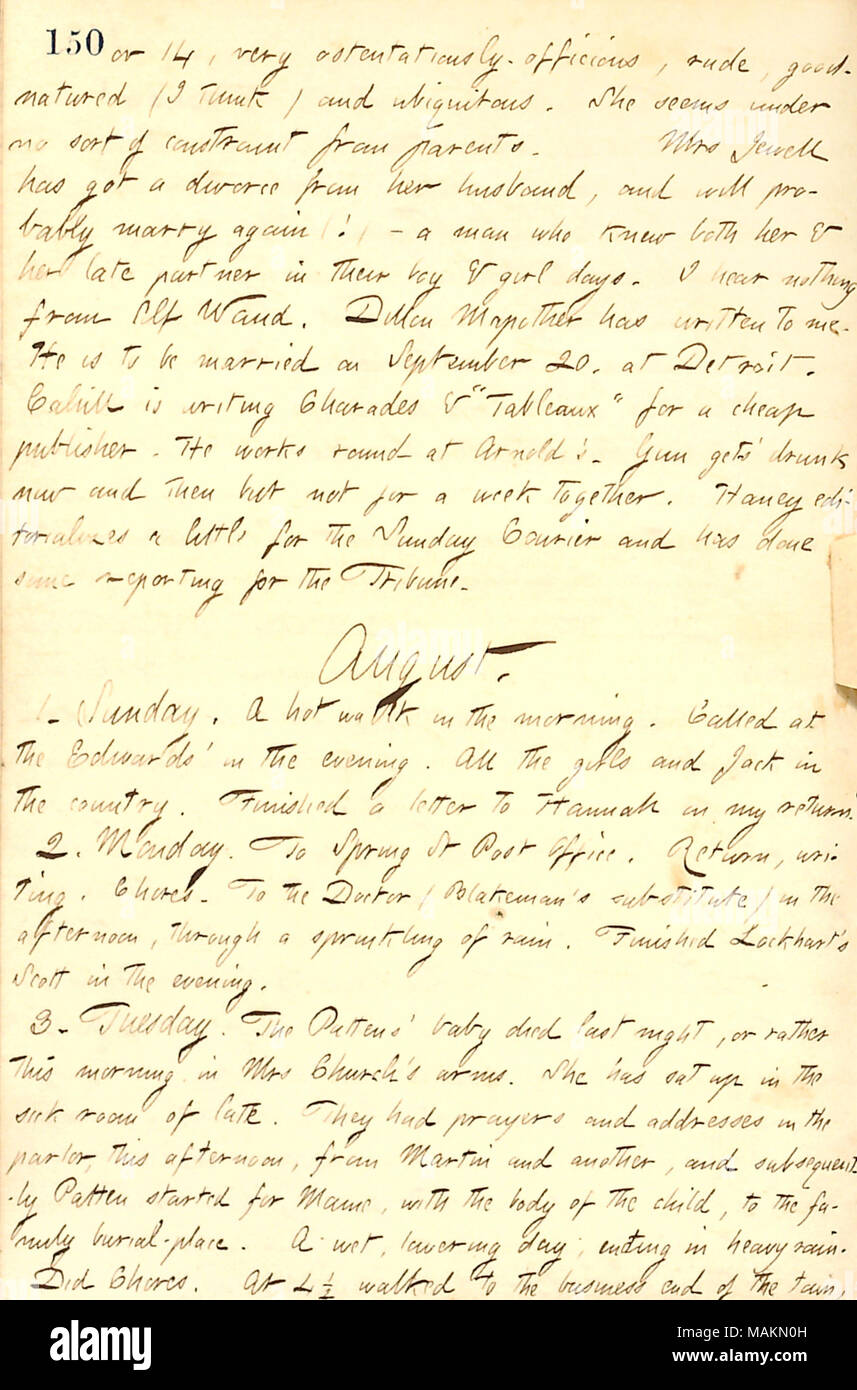 150 or 14, very ostentatiously-officious, rude, good-
natured (I think) and ubiquitous. She seems under
no sort of constraint from parents. Mrs Jewell
has got a divorce from her husband, and will pro-
bably marry again (!) - a man who knew both her &
her late partner in their boy & girl days. I hear nothing
from Alf Waud. Dillon Mapother has written to me.
He is to be married on September 20. at Detroit.
Cahill is writing Charades & "Tableaux" for a cheap
publisher. He works round at Arnold's. Gun gets' drunk
now and then but not for a week together. Haney edi-
torializes a little for the Sunday Courier and has done
some reporting for the Tribune.
August.
1. Sunday. A hot walk in the morning. Called at
the Edwards' in the evening. All the girls and Jack in
the country. Finished a letter to Hannah on my return.
2. Monday. To Spring St Post Office. Return, wri-
ting. Chores. To the Doctor (Blakeman's substitute) in the
afternoon, through a sprinkling of rain. Finished Lockhart's
Scott in the evening.
3. Tuesday. The Pattens' baby died last night, or rather
this morning in Mrs Church's arms. She has sat up in the
sick room of late. They had prayers and addresses in the
parlor, this afternoon, from Martin and another, and subsequent
-ly Patten started for Maine, with the body of the child, to the fa-
mily burial-place. A wet, lowering day, ending in heavy rain.
Did Chores. At 4 ½ walked to the business end of the town,
alamy
Image ID: MAKN0H
www.alamy.com